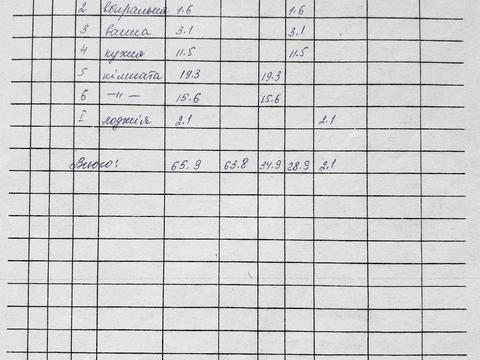 2 вбиральня 1.6 1.6
3 ванна 3.1 3.1
4 кухня 11.5 11.5
5 кімната 19.3 19.3
6 —"— 15.6 15.6
I лоджія 2.1 2.1
Всього: 65.9 63.8 34.9 28.9 2.1